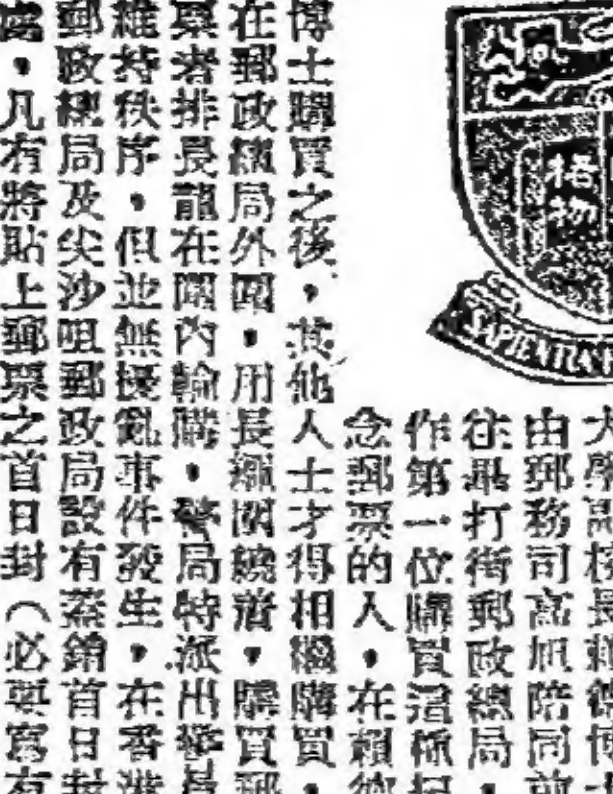 大學高校長賴德博士
由郵務司高帆陪同前
往畢打街郵政總局,
作第一位購買這種紀
念郵票的人,在賴德
博士購買之後,其他人士才得相繼購買,
在郵政總局外圍,用長繩圍繞着,購買郵
票者排長龍在圍內輪購,警局特派出警員
維持秩序,但並無擾亂事件發生,在香港
郵政總局及尖沙咀郵政局設有蓋銷首日封
處,凡有將貼上郵票之首日封(必與寫有
格物
SAPIENTIA